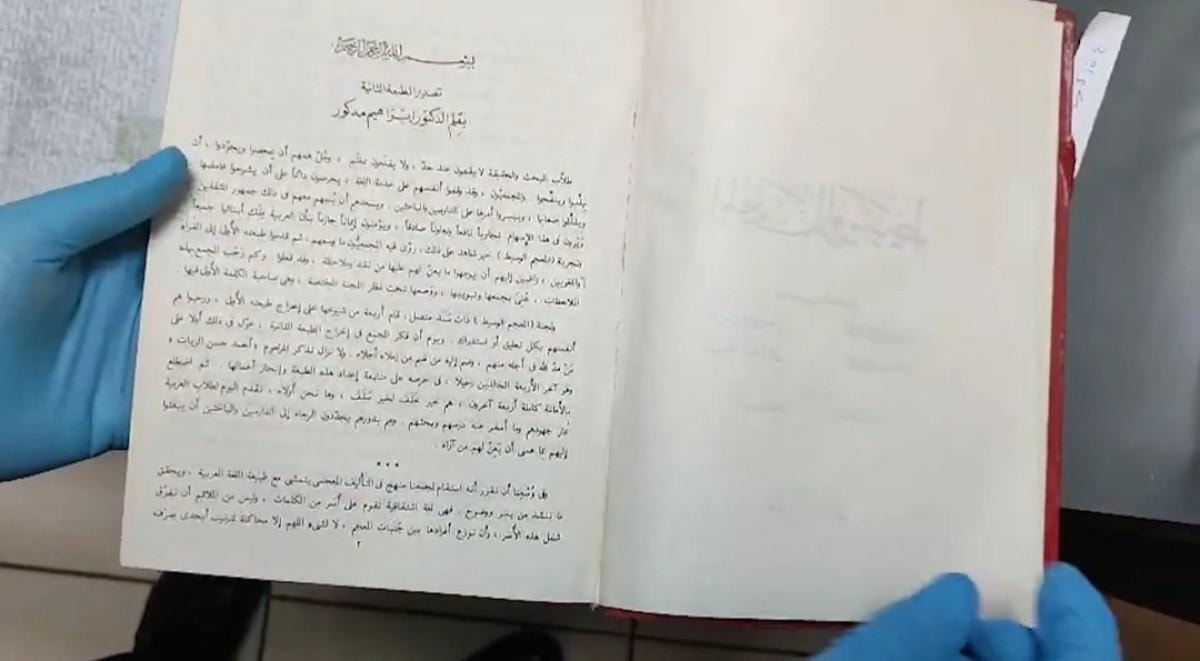 بسم الله الرحمن الرحيم
تصدير الطبعة الثانية
بقلم الدكتور إبراهيم مدكور
طلاب البحث والحقيقة لا يقفون عند حدّ ، ولا يقنعون بقدر ، وجُلّ همهم أن يمحصوا ويجوّدوا ، أن
يهذّبوا وينقّحوا . والمجمعيّون ، وقد وقفوا أنفسهم على خدمة اللغة ، يحرصون دائماً على أن يشرحوا غامضها ،
ويذلّلوا صعابها ، وييسروا أمرها على الدارسين والباحثين . ويسعدهم أن يُسهم معهم فى ذلك جمهور المثقفين ،
ويَرَون فى هذا الإسهام تجاوباً نافعاً وتعاوناً صادقاً ، ويؤمنون إيماناً جازماً بأن العربية مِلْك أبنائها جميعاً
وتجربة ( المعجم الوسيط ) خير شاهد على ذلك ، روّى فيه المجمعيُّون ما وسعهم ، ثم قدموا طبعته الأولى إلى القراء
واللغويين ، راغبين إليهم أن يوجهوا ما يعنّ لهم عليها من نقد وملاحظة . وقد فعلوا . وكم رحّب المجمع بهذه
الملاحظات ، عُنِىَ بجمعها وتبويبها ، ووضعها تحت نظر اللجنة المختصة ، وهى صاحبة الكلمة الأولى فيها .
ولجنة ( المعجم الوسيط ) ذات سَنَد متصل ، قام أربعة من شيوخها على إخراج طبعته الأولى ، ورحبوا هم
أنفسهم بكل تعليق أو استدراك . ويوم أن فكر المجمع فى إخراج الطبعة الثانية ، عوّل فى ذلك أولا على
مَنْ مدّ الله فى أجله منهم ، وضم إليه من ضم من زملاء أجلاء . ولا نزال نذكر للمرحوم « أحمد حسن الزيات »
وهو آخر الأربعة الخالدين رحيلا ، فى حرصه على متابعة إعداد هذه الطبعة وإنجاز أعمالها . ثم اضطلع
بالأمانة كاملة أربعة آخرون ، هم خير خَلَف لخير سَلَف ، وها نحن أولاء ، نقدم اليوم لطلاب العربية
ثمار جهودهم وما أسفر عنه درسهم وبحثهم . وهم بدورهم يجدّدون الرجاء إلى الدارسين والباحثين أن يبعثوا
إليهم بما عسى أن يَعِنّ لهم من آراء .
* * *
وفى وُسْعِنا أن نقرر أنه استقام لمجمعنا منهج فى التأليف المعجمى يتمشى مع طبيعة اللغة العربية ، ويحقق
ما ننشد من يسر ووضوح . فهى لغة اشتقاقية تقوم على أُسَر من الكلمات ، وليس من الملائم أن نفرّق
شمل هذه الأُسَر ، وأن نوزع أفرادها بين جنبات المعجم ، لا لشىء اللهم إلا محاكاة لترتيب أبجدى صرفه
المعجم الوسيط